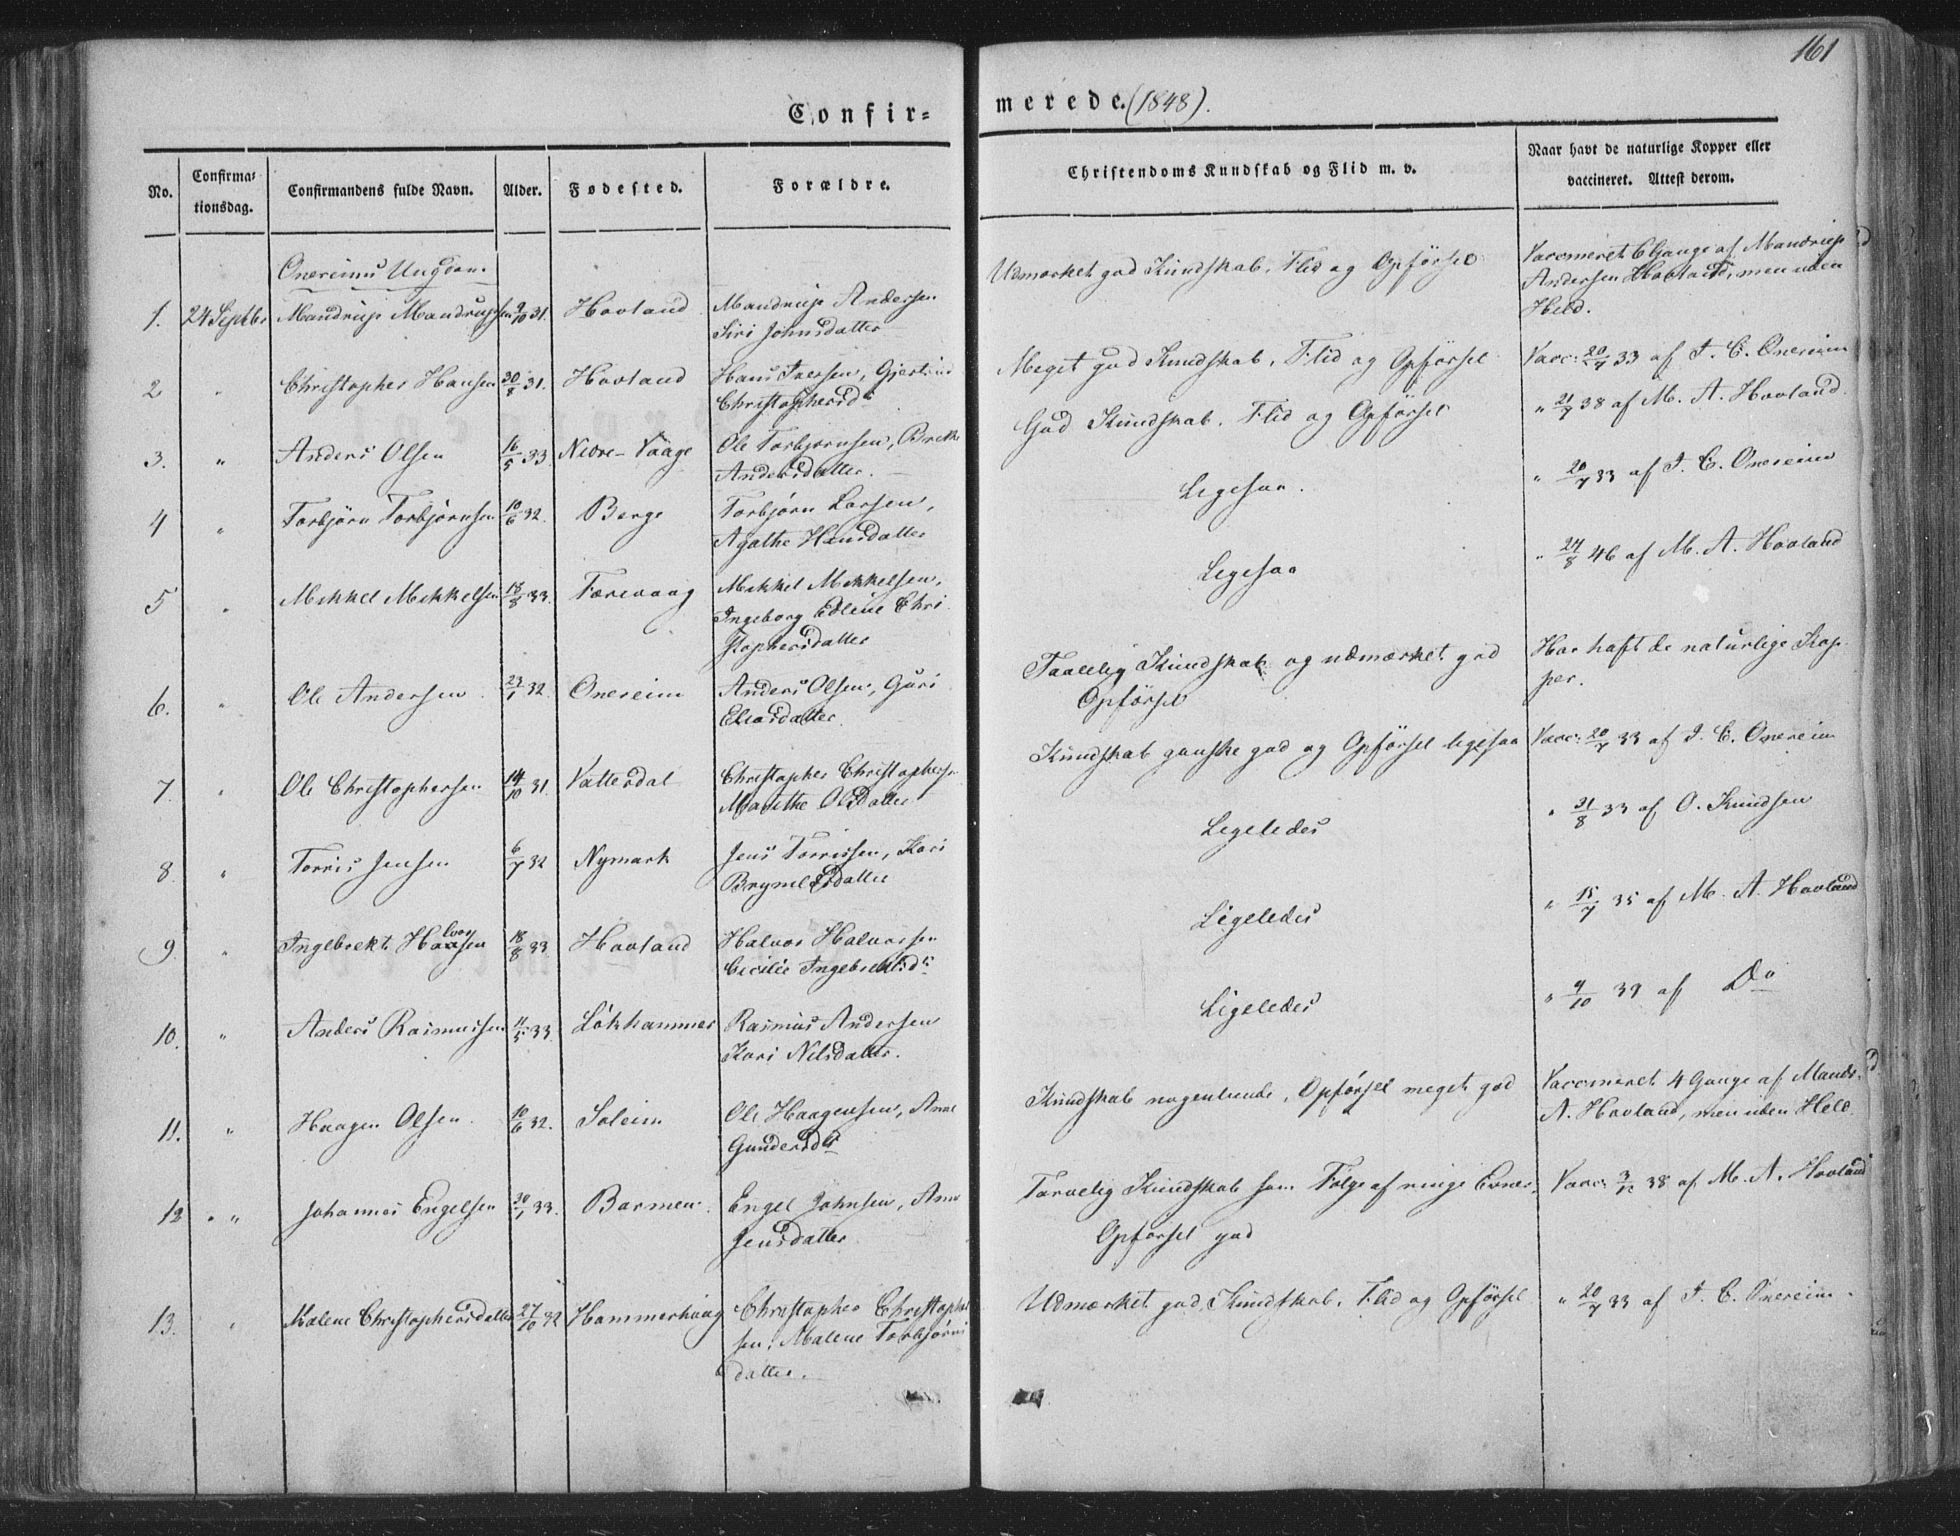 161
Confir-
merede. (1848).
No.
Confirma-
tionsdag.
Confirmandens fulde Navn.
Alder.
Fødested.
Forældre.
Christendoms Kundskab og Flid m. v.
Naar havt de naturlige Kopper eller
vaccineret. Attest derom.
Onereims Ungdom
1. 24 Septbr Mandrup Mandrupsen 9/10 31. Hovland Mandrup Andersen
Siri Johnsdatter
Udmærket god Kundskab, Flid og Opførsel
Vaccineret 6 Gange af Mandrup
Andersen Hovland, men uden
Held.
2 " Christopher Hansen 30/8 31. Hovland Hans Iversen, Gjertrud
Christophersd
Meget god Kundskab, Flid og Opførsel
Vacc: 20/7 33 af T. C. Onereim
3. " Anders Olsen 16/5 33 Nedre-Vaage Ole Torbjørnsen, Brithe
Andersdatter.
God Kundskab, Flid og Opførsel
" 21/7 38 af M. A. Hovland
4 " Torbjørn Torbjørnsen 10/6 32. Berge Torbjørn Larsen,
Agathe Hansdatter
Ligesaa.
" 20/7 33 af T. C. Onereim
5 " Mikkel Mikkelsen 18/8 33. Færevaag Mikkel Mikkelsen,
Ingeborg Edlene Chri
stophersdatter
Ligesaa
" 24/8 46 af M. A. Hovland
6. " Ole Andersen 23/1 32. Onereim Anders Olsen, Guri
Eliasdatter
Taalelig Kundskab og udmærket god
Opførsel
Har haft de naturlige Kop-
per.
7. " Ole Christophersen 14/10 31. Vattersdal Christopher Christophers
Marithe Olsdatter
Kundskab ganske god og Opførsel ligesaa
Vacc: 20/7 33 af T. C. Onereim
8. " Torris Jensen 6/7 32 Nymark Jens Torrissen, Kari
Brynildsdatter
Ligeledes
" 31/8 33 af O. Knudsen
9. " Ingebrekt Halvorsen 18/8 33. Hovland Halvor Halvorsen
Cecilie Ingebrektsdr
Ligeledes
" 15/7 35 af M. A. Hovland
10. " Anders Rasmussen 11/5 33. Løkhammer Rasmus Andersen
Kari Nilsdatter.
Ligeledes
" 9/10 39 af Do
11. " Haagen Olsen 10/6 32. Soleim Ole Haagensen, Anne
Gundersdtr
Kundskab nogenlunde, Opførsel meget god
Vaccineret 4 Gange af Mandr.
A. Hovland, men uden Held.
12 " " Johannes Engelsen 20/1 33. Barmen Engel Johnsen, Anne
Jensdatter
Tarvelig Kundskab som Følge af ringe Evner,
Opførsel god
Vacc: 38 af M. A. Hovland
13. " Malene Christophersdatter 27/10 32 Hammerhoug Christopher Christopher
sen, Malene Torbjørns
datter.
Udmærket god Kundskab, Flid og Opførsel
" 20/7 33 af T. C. Onereim